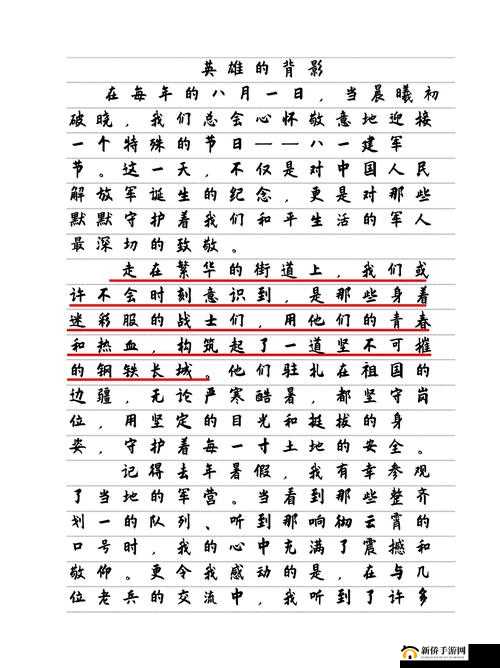 英雄的背影
在每年的八月一日，当晨曦初
破晓，我们总会心怀敬意地迎接
一个特殊的节日——八一建军
节。这一天，不仅是对中国人民
解放军诞生的纪念，更是对那些
默默守护着我们和平生活的军人
最深切的致敬。
走在繁华的街道上，我们或
许不会时刻意识到，是那些身着
迷彩服的战士们，用他们的青春
和热血，构筑起了一道坚不可摧
的钢铁长城。他们驻扎在祖国的
边疆，无论严寒酷暑，都坚守岗
位，用坚定的目光和挺拔的身
姿，守护着每一寸土地的安全。
记得去年暑假，我有幸参观
了当地的军营。当看到那些整齐
划一的队列、听到那响彻云霄的
口号时，我的心中充满了震撼和
敬仰。更令我感动的是，在与几
位老兵的交流中，我听到了许多
新侨手游网